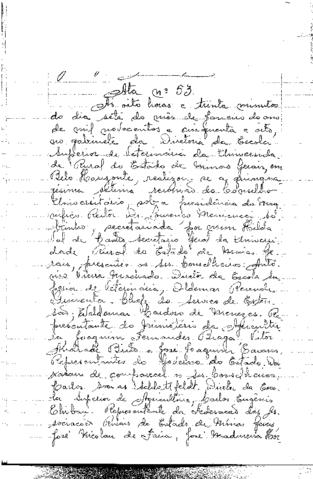 Ata nº 53
As oito horas e trinta minutos
do dia sete do mês de Janeiro do ano
de mil novecentos e cinquenta e oito,
no gabinete da Diretoria da Escola
Superior de Veterinária da Universida-
de Rural do Estado de Minas Gerais em
Belo Horizonte, realizou-se a quinqua-
gésima setima reunião do Conselho
Universitário, sob a presidência do Mag-
nífico Reitor Dr. Lourenço Menicucci So-
brinho, secretariada por mim
de secretário Geral da Universi-
dade Rural do Estado de Minas Ge-
rais, presentes os srs. Conselheiros: Antô-
nio Vieira Machado, Diretor da Escola Su-
perior de Veterinária,
Chefe do Serviço de Exten-
são; Waldemar Cardoso de Menezes, Re-
presentante do Ministério da Agricultu-
ra Joaquim Fernandes Braga, Vitor
e José Joaquim
Representantes do Governo do Estado. Dei-
xaram de comparecer os srs. Conselheiros,
Carlos Socias Schlottfeldt, Diretor da Esco-
la Superior de Agricultura, Carlos Eugênio
Representante da Federação das As-
sociações Rurais do Estado de Minas Gerais
José Nicolau de Faria, José Madureira